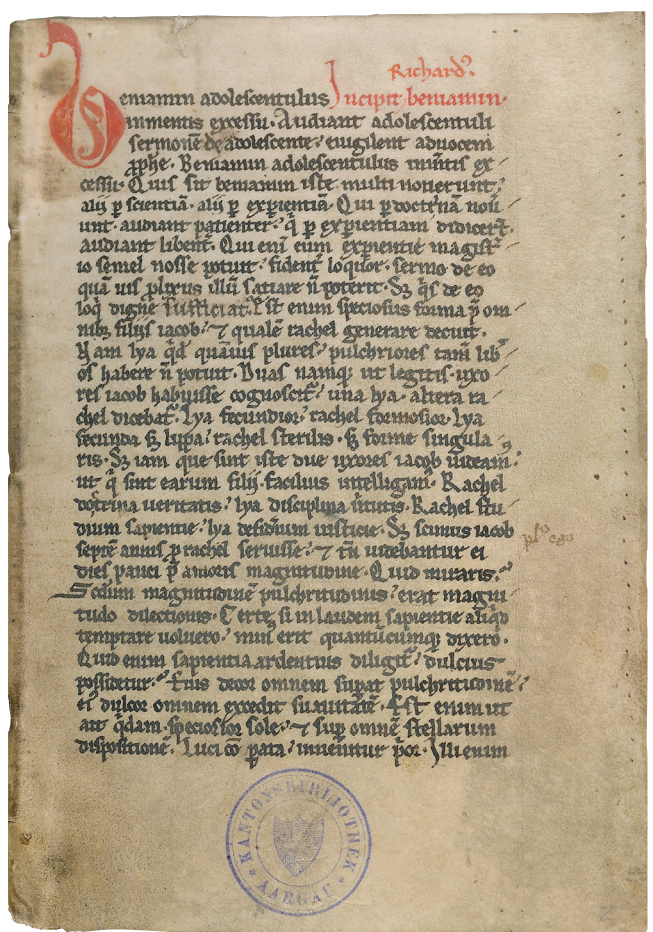 Richardꝰ.
Beniamin adolescentulus Incipit beniamin.
in mentis excessu. Audiant adolescentuli
sermonē de adolescente. euigilent ad uocem
ꝓphe. Beniamin adolescentulus in mtis ex
cessu. Quis sit beniamin iste multi nouerunt.
alij ꝑ scientiā. alij ꝑ exꝑientiā. Qui ꝑ doctrinā noū
unt. audiant patienter. q̇ ꝑ exꝑientiam didicert.
audiant libent. Qui eni eum exꝑientie magist
io semel nosse potuit. fident loquor. sermo de eo
quāuis prlixus illū satiare n̄ poterit. Sꝫ q̇s de eo
loq̇ digne sufficiat. Est enim speciosus forma p̄ om
nibꝫ filijs iacob. ⁊ qualē rachel generare decuit.
Nam lya q̇d quāuis plures. pulchriores tam̄ lib
os habere n̄ potuit. Duas namqꝫ ut legitis uxo
res iacob habuisse cognoscit. una lya. altera ra
chel dicebat. Lya fecundior. rachel formosior. Lya
fecunda sꝫ lippa. rachel sterilis. sꝫ forme singula
ris. Sꝫ iam que sint iste due uxores iacob uideamꝰ.
ut q̇ sint earum filij. facilius intelligam. Rachel
doctrina ueritatis. lya disciplina uirtutis. Rachel stu
dium sapientie. lya desideriū iusticie. Sꝫ scimus iacob
septē annis ꝓ rachel seruisse. ⁊ tn̄ uidebantur ei
dies pauci p̄ amoris magnitudine. Quid miraris.
Scdum magnitudinē pulchritudinis. erat magni
tudo dilectionis. Certe si in laudem sapientie aliq̇d
temptare uoluero. minꝰ erit quantūcumqꝫ dixero.
Quid enim sapientia ardentius diligit. dulcius
possidetur. Eius decor omnem suꝑat pulchritudinē.
eiꝰ dulcor omnem excedit suauitatē. Est enim ut
ait q̇dam. speciosior sole. ⁊ suꝑ omnē stellarum
dispositionē. Luci cō ꝑata. inuenitur p̓or. Illi enim
KANTONSBIBLIOTHEK
AARGAU